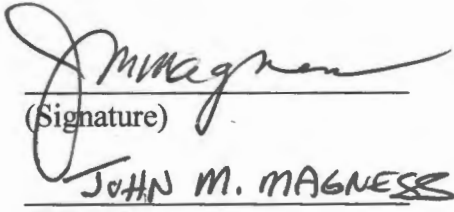 J M Magness
(Signature)
JOHN M. MAGNESS